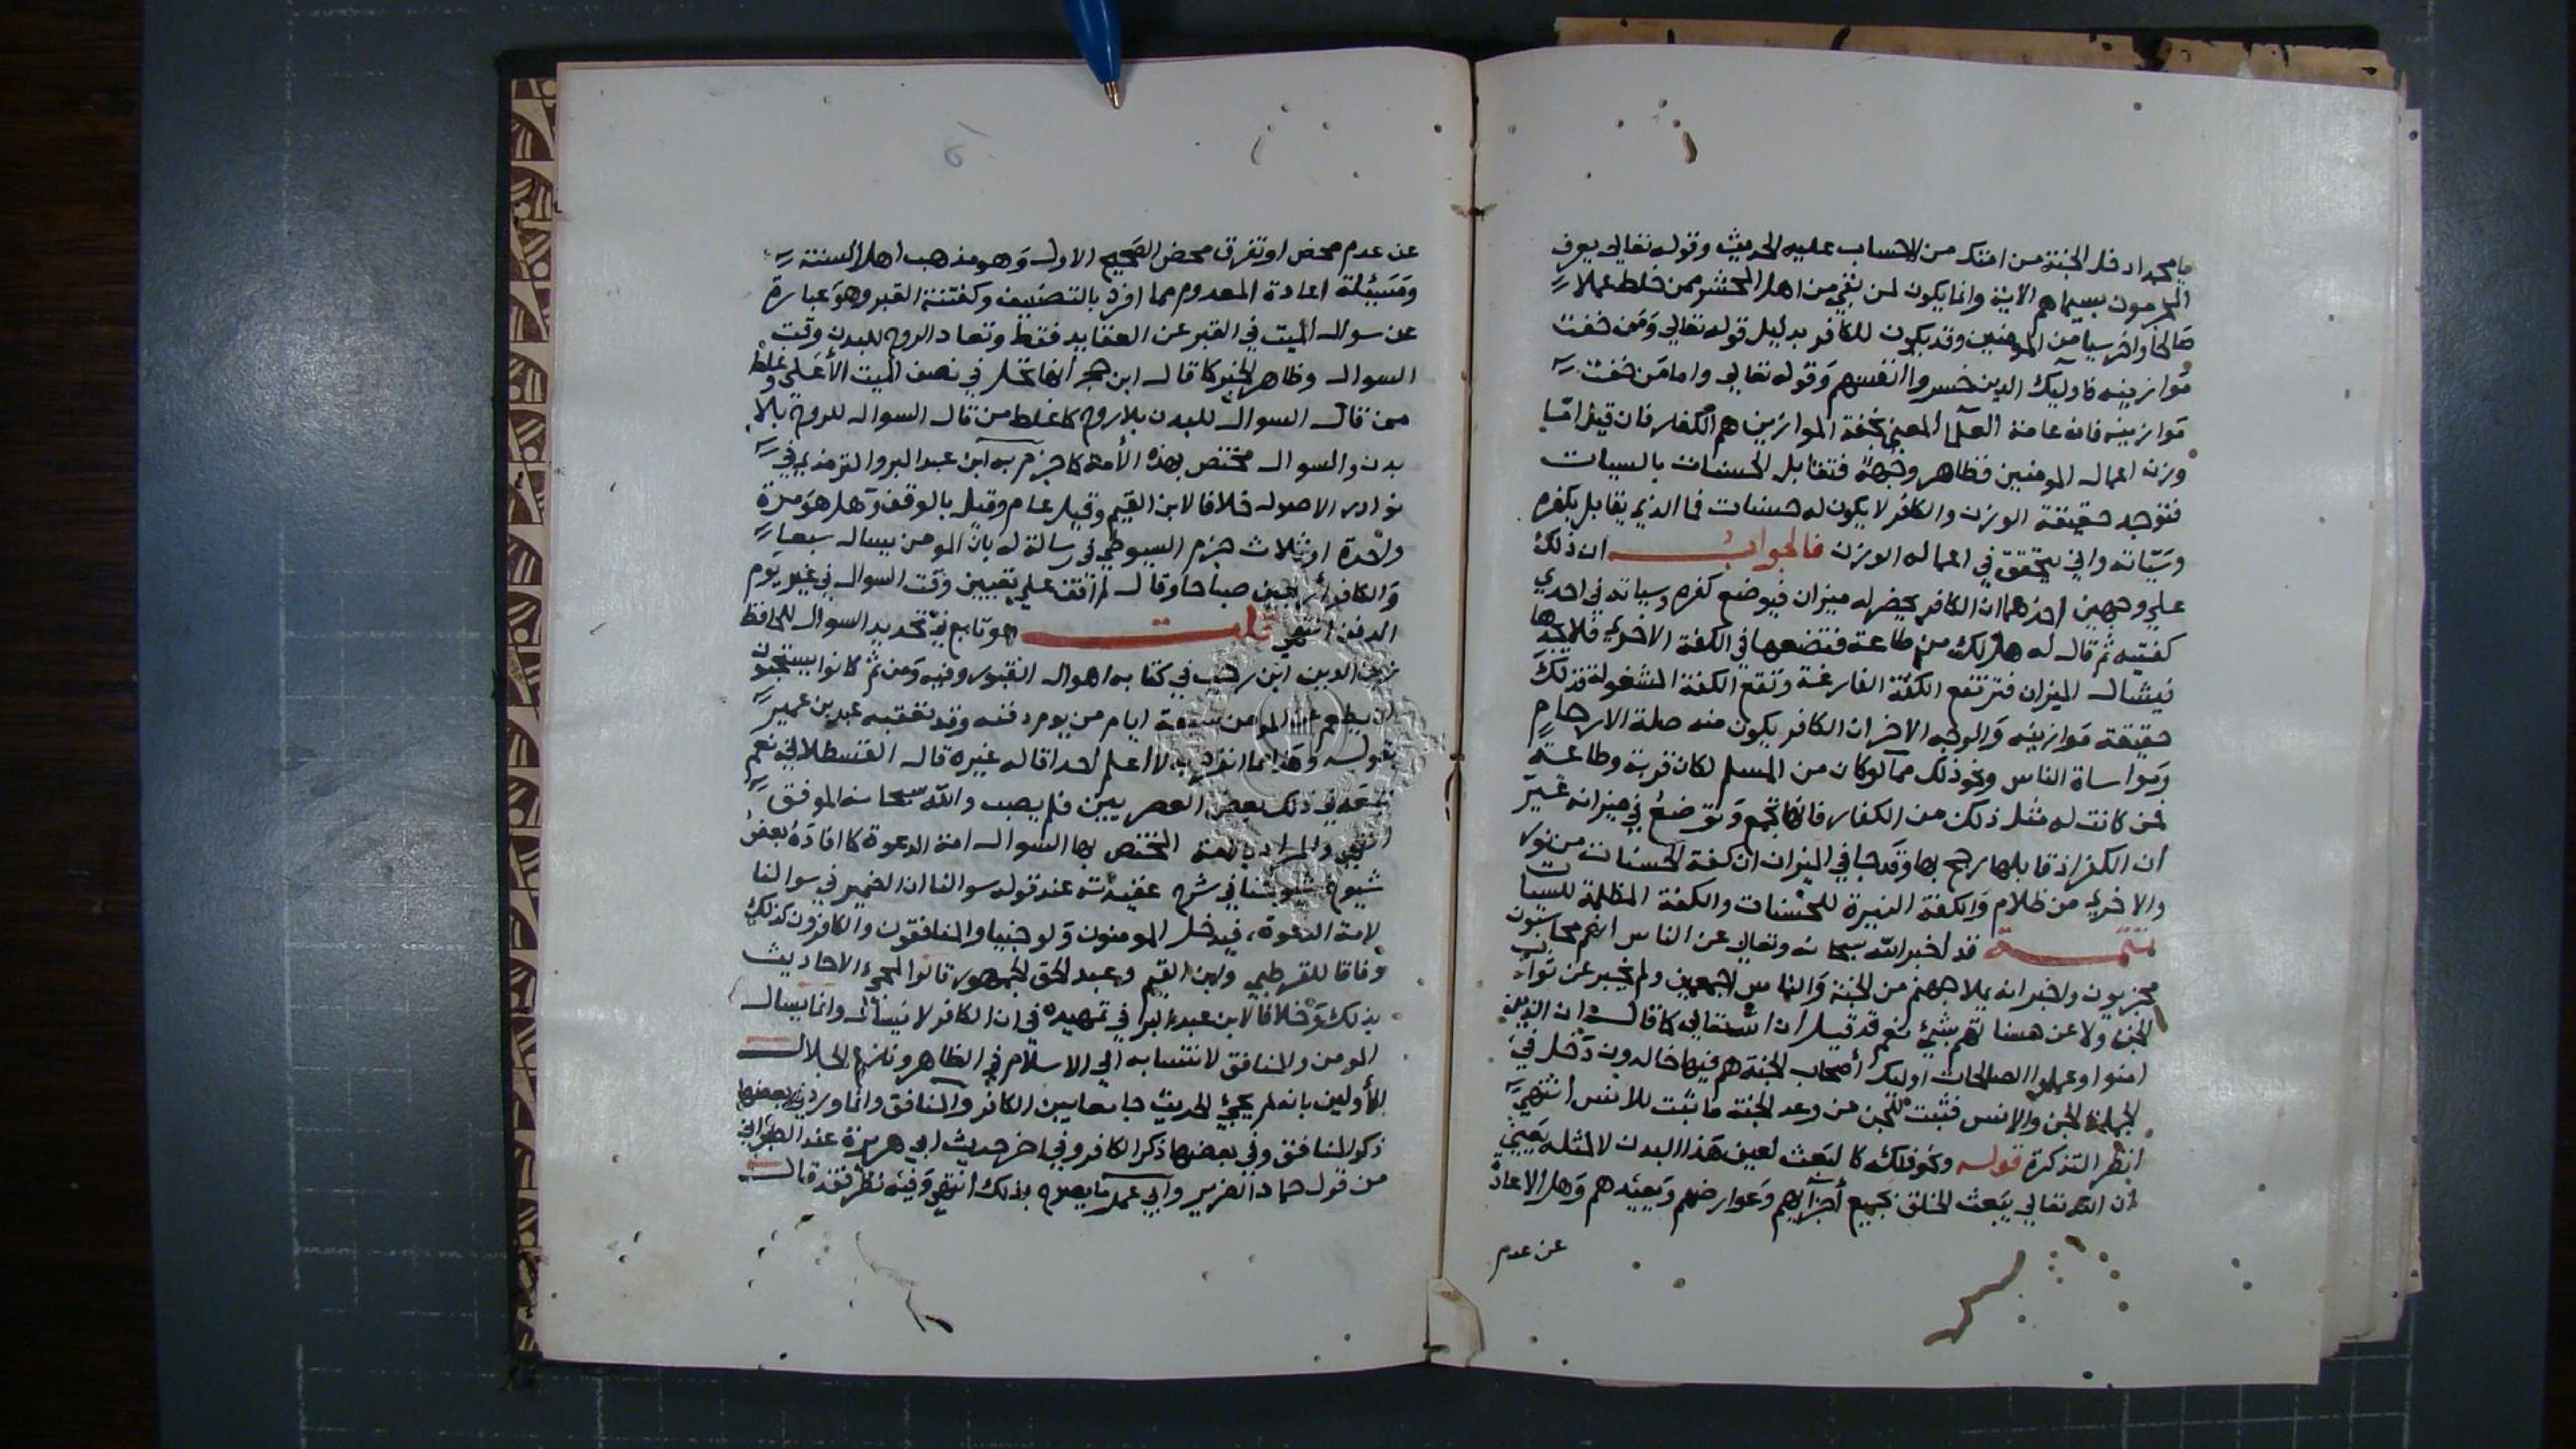 يا محمد ادخل الجنة من امتك من لا حساب عليه الحديث وقوله تعالى يعرف
المجرمون بسيماهم الاية وانما يكون لمن بقي من اهل المحشر ممن خلط عملا
صالحا واخر سيا من المومنين وقد يكون للكافر بدليل قوله تعالى ومن خفت
موازينه فاوليك الذين خسروا انفسهم وقوله تعالى واما من خفت
موازينه فانه عامة العلما المعني بخفة الموازين هم الكفار فان قيل اما
وزن اعمال المومنين فظاهر وجهه فتقابل الحسنات بالسيات
فتوجد حقيقة الوزن والكافر لا يكون له حسنات فما الذي يقابل بكفره
وسيّاته واني يتحقق في اعماله الوزن فالجواب ان ذلك
علي وجهين احدهما ان الكافر يحضر له ميزان فيوضع كفره وسياته في احدي
كفتيه ثم قال له هل لك من طاعة فتضعها في الكفة الاخري فلا يجدها
فيشال الميزان فترتفع الكفة الفارغة وتقع الكفة المشغولة فذلك
حقيقة موازينه والوجه الاخر ان الكافر يكون منه صلة الارحام
ومواساة الناس ونحو ذلك مما لو كان من المسلم لكان قربة وطاعة
فمن كانت له مثل ذلك من الكفار فانها تجمع وتوضع في ميزانه غير
ان الكفر اذ قابلها رجح بها وقد جا في الميزان ان كفة الحسنات من نور
والاخري من ظلام والكفة النيرة للحسنات والكفة المظلمة للسيات
تتمة قد اخبر الله سبحانه وتعالى عن الناس انهم محاسبون
مجزيون واخبر انه يملا جهنم من الجنة والناس اجمعين ولم يخبر عن ثواب
الجن ولا عن حسابهم بشيئ نعم قد قيل ان الله تعالي كما قال ان الذين
امنوا وعملوا الصالحات اوليك أصحاب الجنة هم فيها خالدون دخل في
الجملة الجن والانس فثبت للجن من وعد الجنة ما ثبت للانس انتهي
انظر التذكرة قوله وكوفلك كا لبعث لعين هذا البدن لا لمثله يعني
ان الله تعالي يبعث الخلق بجميع أجزايهم وعوارضهم ويعيدهم وهل الاعادة
عن عدم
عن عدم محض او تفرق محض الصحيح الاول وهو مذهب اهل السنة
ومسيلة اعادة المعدوم مما افرد بالتصنيف وكفتنة القبر وهو عبارة
عن سوال الميت في القبر عن العقايد فقط وتعاد الروح للبدن وقت
السوال وظاهر الخبر كما قال ابن حجر أنها تحل في نصف الميت الأعلى وغلط
من قال السوال للبدن بلا روح كما غلط من قال السوال للروح بلا
بدن والسوال مختص بهذه الأمة كما جزم به ابن عبد البر والترمذي في
نوادر الاصول خلافا لابن القيم وقيل عام وقيل بالوقف وهل هو مرة
واحدة او ثلاث جزم السيوطي في رسالة له بان المومن يسال سبعا
والكافر أربعين صباحا وقال لم أقف علي تعيين وقت السوال في غير يوم
الدفن انتهي قلت هو تابع في تحديد السوال للحافظ
زين الدين ابن رجب في كتابه اهوال القبور وفيه ومن ثم كانوا يستحبون
ان يطعم عن المومن سبعة ايام من يوم دفنه وقد تعقبه عبد بن عمير
بقوله وهذا مما انفرد به لا اعلم احدا قاله غيره قال القسطلاني نعم
تبعه في ذلك بعض العصريين فلم يصب والله سبحانه الموفق
انتهي والمراد بالامة المختص بها السوال امة الدعوة كما افاده بعض
شيوخ شيوخنا في شرح عقيدته عند قوله سوالنا ان الضمير في سوالنا
لامة الدعوة، فيدخل المومنون ولو جنيا والمنافقون والكافرون كذلك
وفاقا للقرطبي وابن القيم وعبد الحق الجمهور قالوا لمجيء الاحاديث
بذلك وخلافا لابن عبد البر في تمهيده في ان الكافر لا يسال وانما يسال
المومن والمنافق لانتسابه الي الاسلام في الظاهر ونازع الجلال
للأولين بانه لم يجئ الحديث جامعا بين الكافر والمنافق وانما ورد في بعضها
ذكر المنافق وفي بعضها ذكر الكافر وفي اخر حديث ابي هريرة عند الطبراني
من قول حماد الضرير وابي عمر ما يصرح بذلك انتهي وفيه نظر فقد قال